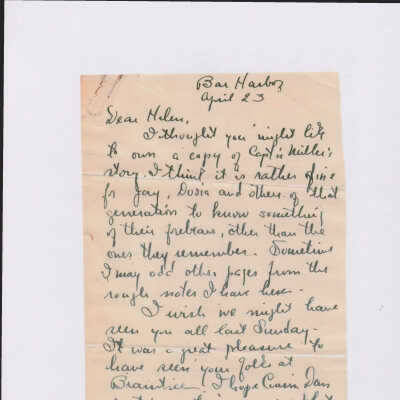 Bar Harbor
April 23
Dear Helen,
I thought you might like
to own a copy of Capt'n Miller's
story. I think it is rather fine
for Jay, Dosia and others of that
generation to know something
of their forbears, other than the
ones they remember. Sometime
I may add other pages from the
rough notes I have here.
I wish we might have
seen you all last Sunday.
It was a great pleasure to
have seen your folks at
Braintree. I hope Cousin Dan